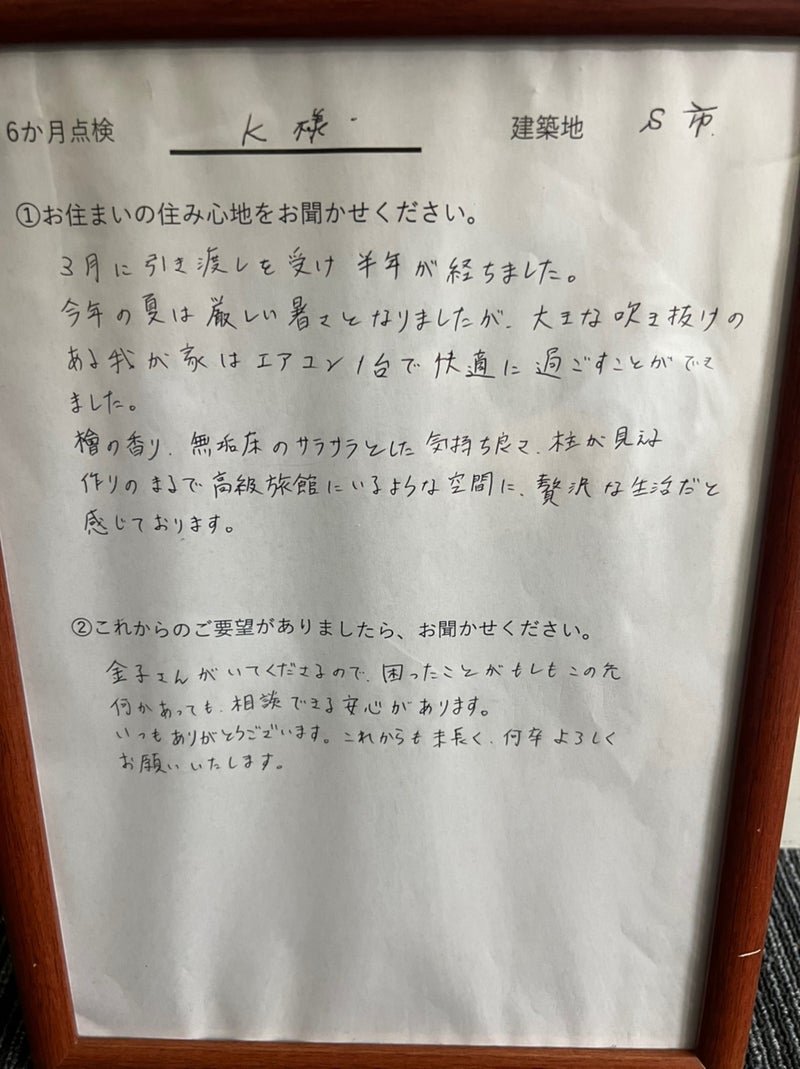 6か月点検 K 様 建築地 S 市
①お住まいの住み心地をお聞かせください。
3月に引き渡しを受け 半年が経ちました。
今年の夏は厳しい暑さとなりましたが、大きな吹き抜けの
ある我が家はエアコン1台で快適に過ごすことができ
ました。
檜の香り、無垢床のサラサラとした気持ち良さ、柱が見える
作りのまるで高級旅館にいるような空間に、贅沢な生活だと
感じております。
②これからのご要望がありましたら、お聞かせください。
金子さんがいてくださるので、困ったことがもしもこの先
何かあっても、相談できる安心があります。
いつもありがとうございます。これからも末長く、何卒よろしく
お願いいたします。